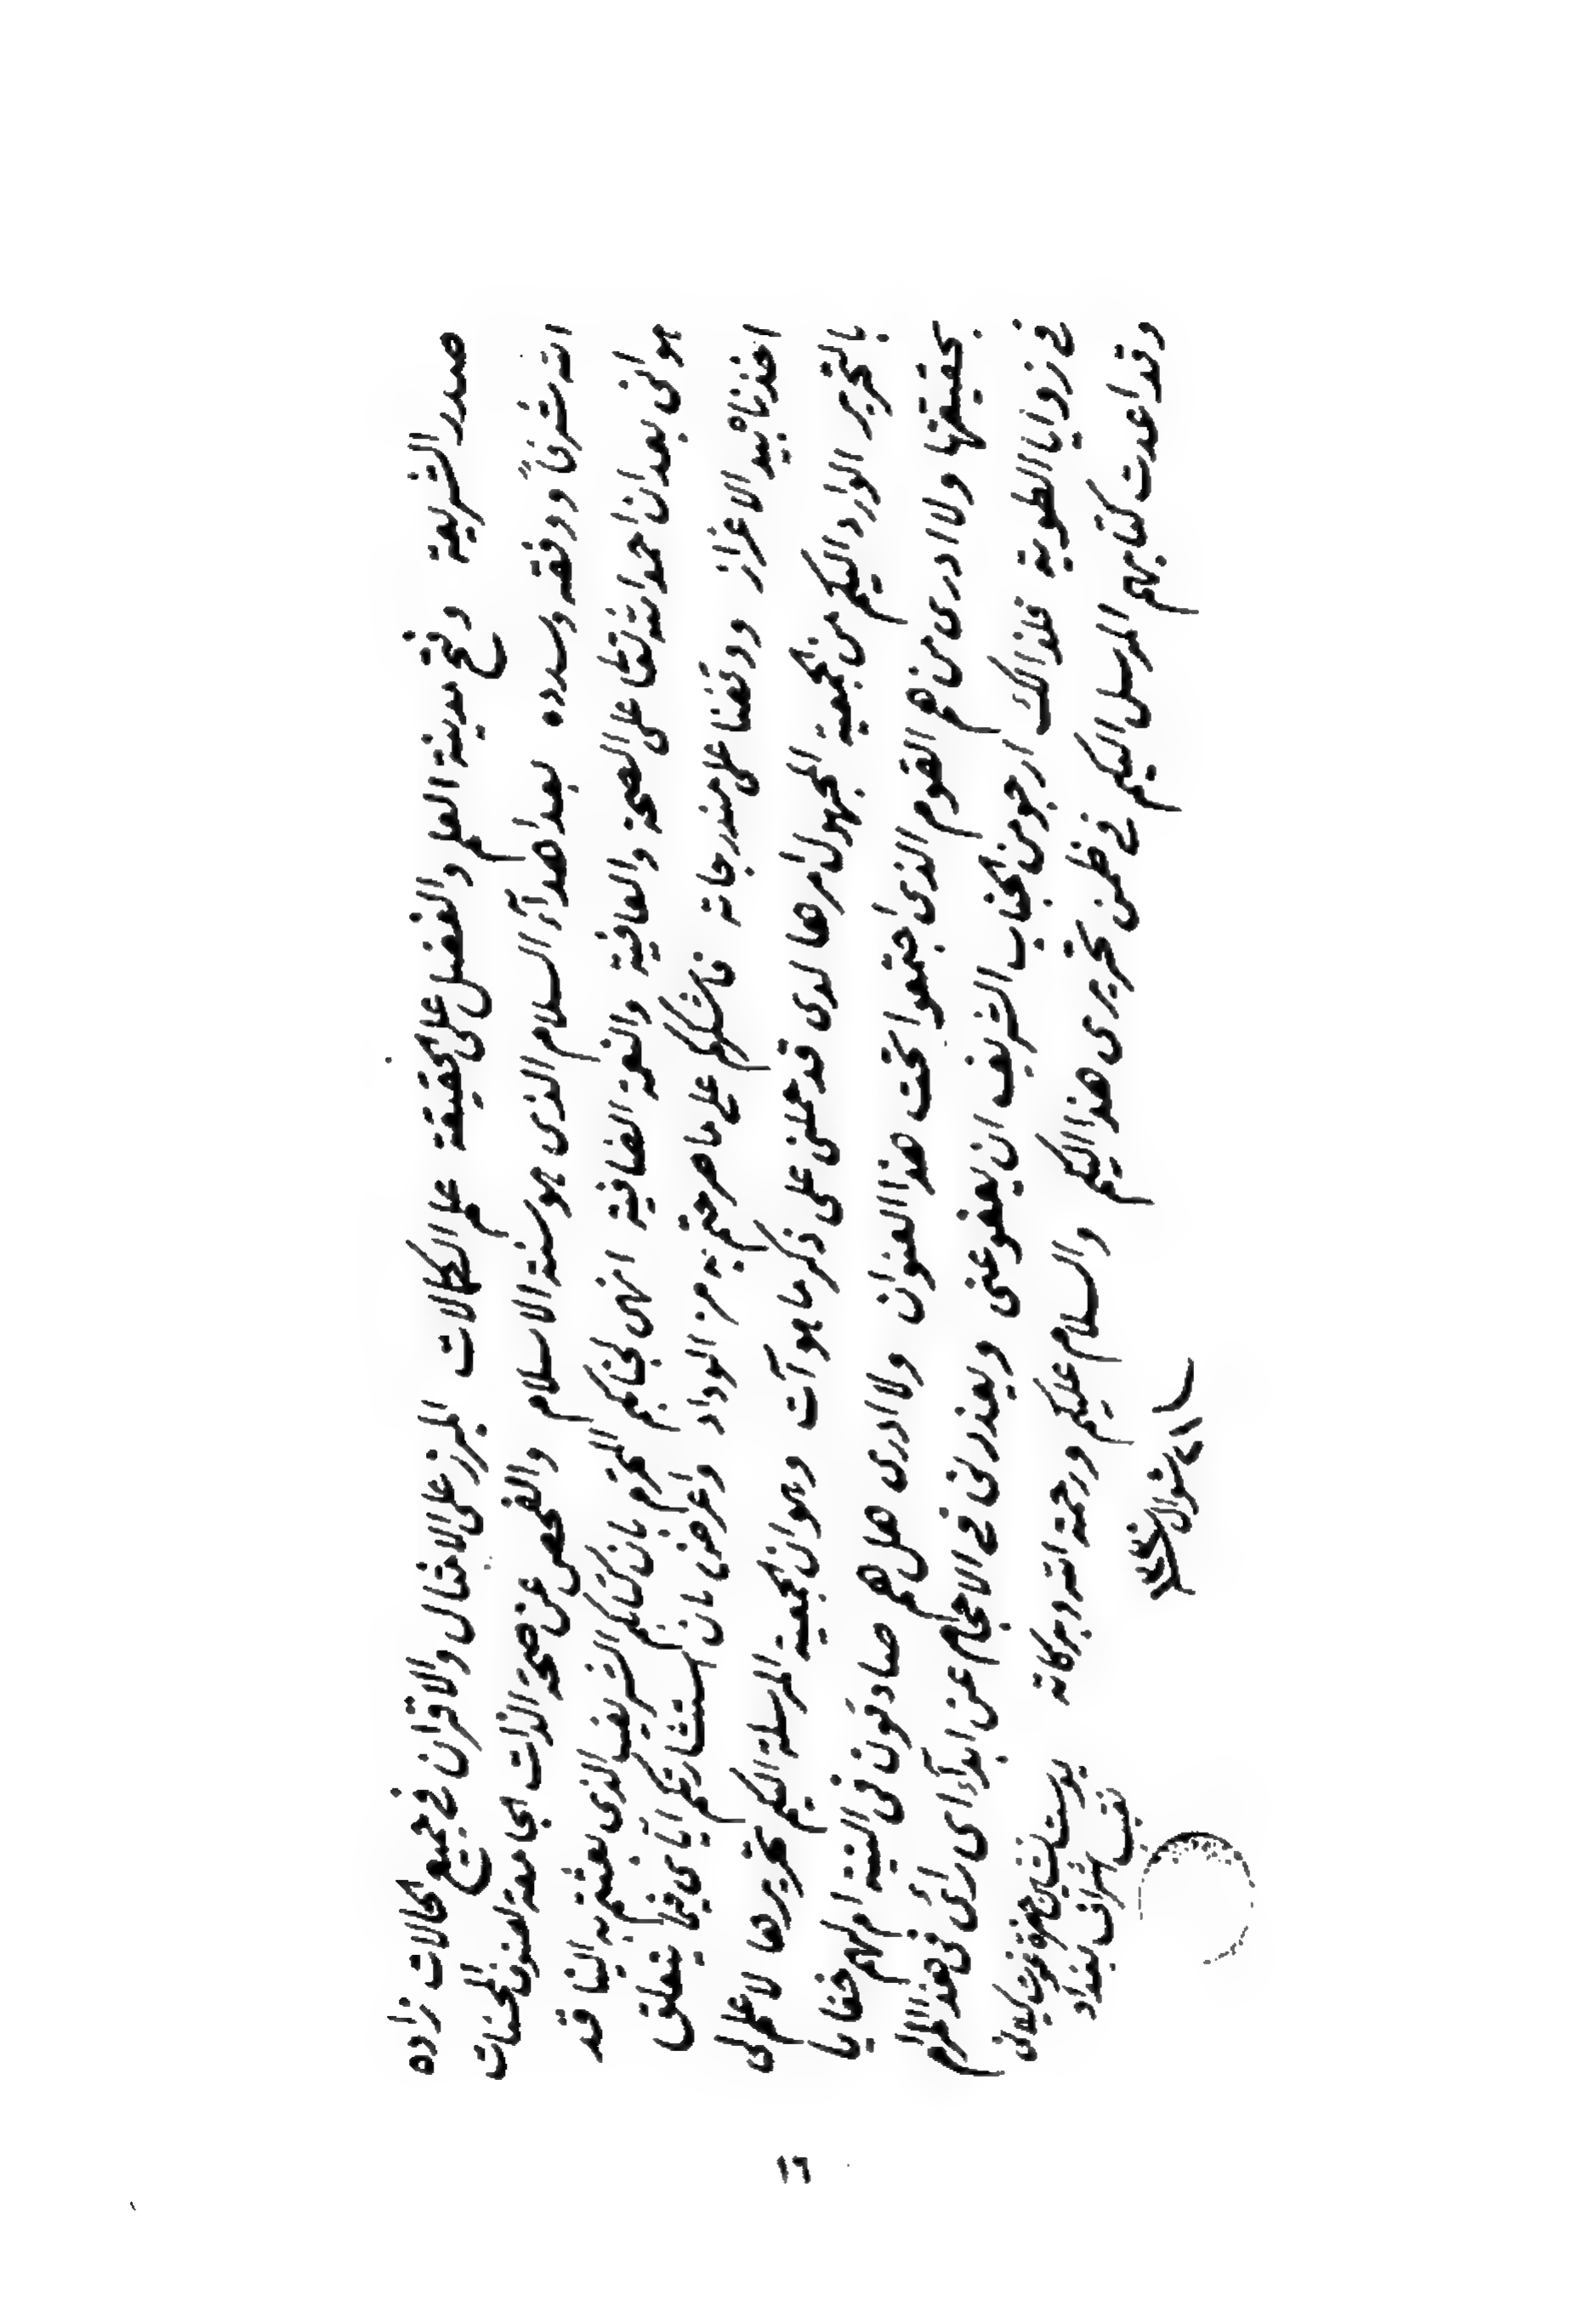 صدر الشريعة وفتح مدينة العلم والفضل على الحقيقة علم الكمالات المبرز على الامثال والاقران في جميع الحالات زاده
الله شرفاً ووفقه وسدده بعد اهدآء السلام الذي هو سنة الاسلام والفحص عن صحة الذات الجامعة لفنون المحسنات
هو انى بعد ان احمد الله تعالى على الصحة والعافية والنعمة الضافية انهى لجنابكم المحترم بان كتابكم الشريف الذي بعثتم به الينا قد
اخذناه بيد الاعزاز ووقفنا على مندرجاته فاشكركم على ما صرحتم به من الوداد واعرض بان استشارتكم اياي فيما يتعلق
بالتحرير الوارد اليكم من الجمعية المجهول امرها لدى قد حملنى على ذكر ما هو آت وهو ان الجمعية المرسلة اليكم تحريرها لا علم لى
بحقيقتها ولا ادرى من هم القوم الذي اجتمعوا تحت هذا العنوان ولا ادرى هل هم صادقون في النية ام لهم خفايا
في زوايا الطوية فلذالك ارجو من الجناب الشريف ان يعفو عنى ويعذرنى في الاحجام عن ابدآء اى رأى في هذا المرام
وقد اعدت كتابهم المرسل اليكم في ظرف تحريرى هذا اليكم والسلام عليكم ورحمة الله وبركاته
نقيب اشراف بغداد
شوال
١٦